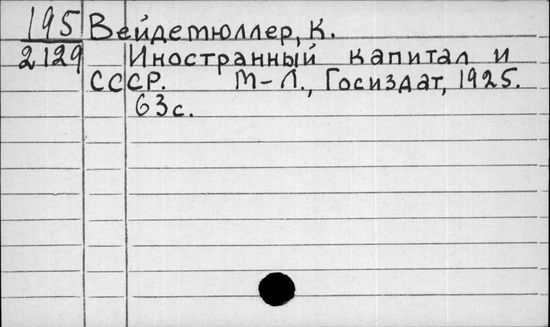 195 Вейдемюллер, К.
2129 Иностранный капитал и
СССР. М-Л., Госиздат, 1925.
63с.